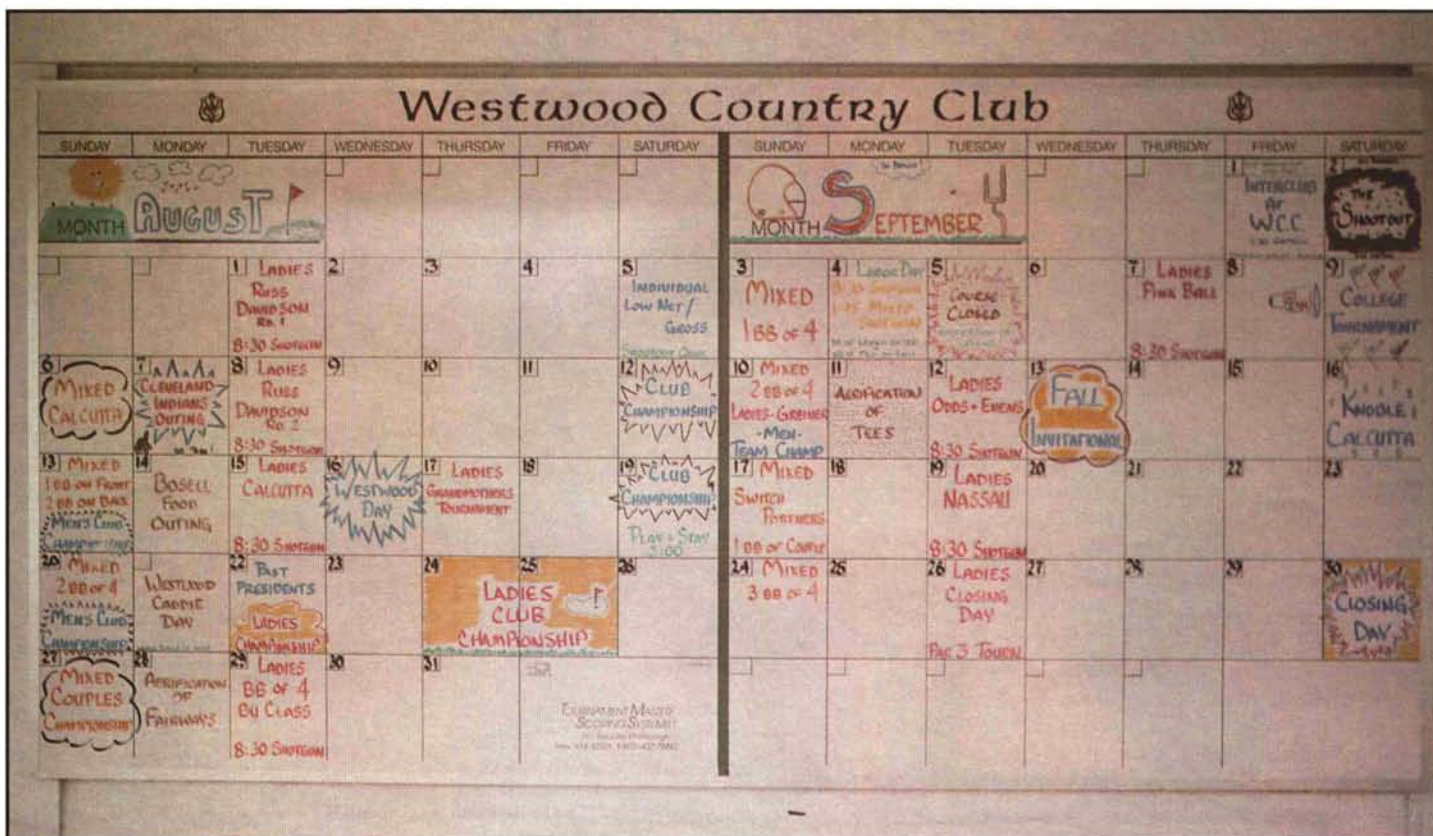 Westwood Country Club
SUNDAY MONDAY TUESDAY WEDNESDAY THURSDAY FRIDAY SATURDAY
MONTH AUGUST
1 LADIES
RUSS
DAVIDSON
RD. 1
8:30 SHOTGUN
2
3
4
5
INDIVIDUAL
LOW NET/
GROSS
6
MIXED
CALCUTTA
7
CLEVELAND
INDIANS
OUTING
8 LADIES
RUSS
DAVIDSON
RD. 2
8:30 SHOTGUN
9
10
11
12
CLUB
CHAMPIONSHIP
13 MIXED
1 BB ON FRONT
2 BB ON BACK
MEN'S CLUB
CHAMPIONSHIP
14
BOSELL
FOOD
OUTING
15 LADIES
CALCUTTA
8:30 SHOTGUN
16
WESTWOOD
DAY
17 LADIES
GRANDMOTHERS
TOURNAMENT
18
19
CLUB
CHAMPIONSHIP
PLAY & STAY
3:00
20 MIXED
2 BB OF 4
MEN'S CLUB
CHAMPIONSHIP
WESTWOOD
CADDIE
DAY
22 PAST
PRESIDENTS
LADIES
CHAMPIONSHIP
23
24
25
LADIES
CLUB
CHAMPIONSHIP
26
27
MIXED
COUPLES
CHAMPIONSHIP
28
AERIFICATION
OF
FAIRWAYS
29 LADIES
BB OF 4
BY CLASS
8:30 SHOTGUN
30
31
TOURNAMENT MASTER
SCORING SYSTEMS
SUNDAY MONDAY TUESDAY WEDNESDAY THURSDAY FRIDAY SATURDAY
MONTH SEPTEMBER
1
INTERCLUB
AT
WCC
2
THE
SHOOTOUT
3
MIXED
1 BB OF 4
4 LABOR DAY
8:30 SHOTGUN
5
COURSE
CLOSED
6
7 LADIES
PINK BALL
8:30 SHOTGUN
8
9
COLLEGE
TOURNAMENT
10 MIXED
2 BB OF 4
LADIES-GREINER
-MEN-
TEAM CHAMP
11
AERIFICATION
OF
TEES
12
LADIES
ODDS & EVENS
8:30 SHOTGUN
13
FALL
INVITATIONAL
14
15
16
CALCUTTA
17 MIXED
SWITCH
PARTNERS
1 BB OF COUPLE
18
19
LADIES
NASSAU
8:30 SHOTGUN
20
21
22
23
24 MIXED
3 BB OF 4
25
26 LADIES
CLOSING
DAY
PAR 3 TOURN
27
28
29
30
CLOSING
DAY